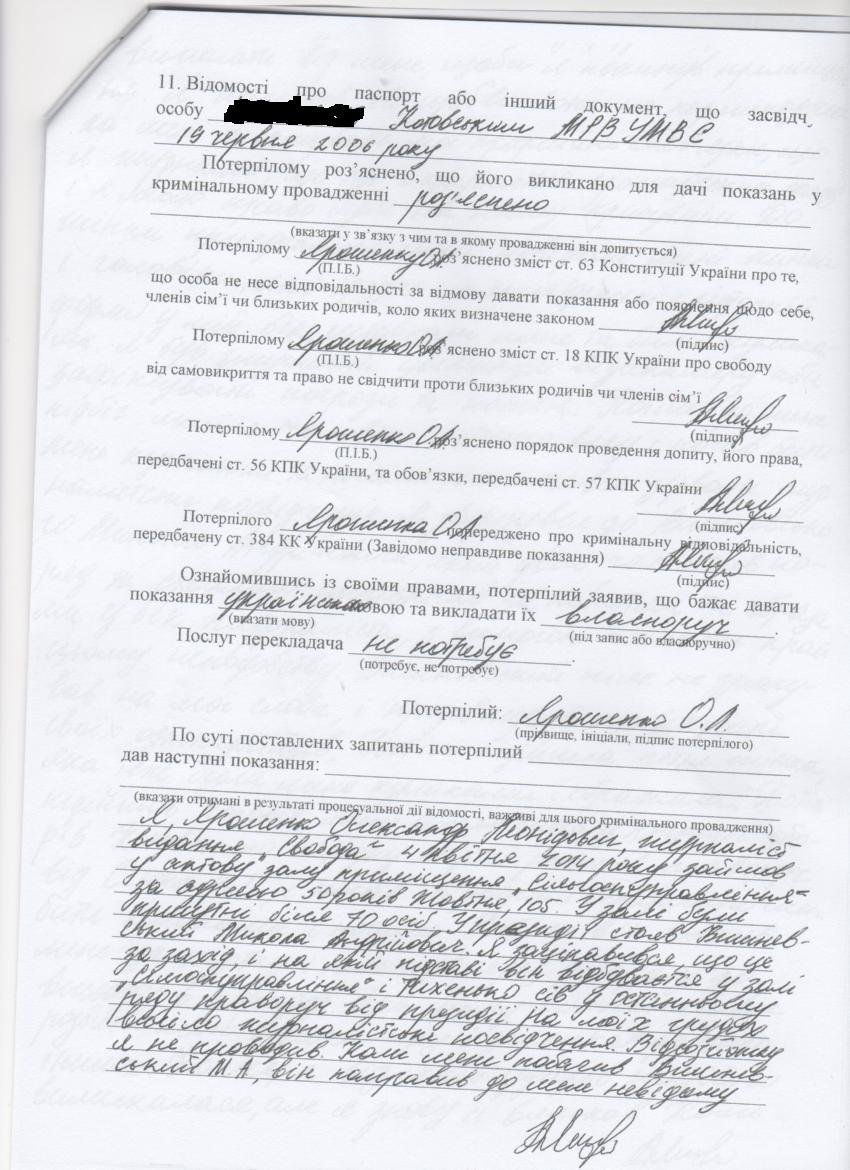 11. Відомості про паспорт або інший документ, що засвідч
особу Котовським МРВ УМВС
19 червня 2006 року
Потерпілому роз’яснено, що його викликано для дачі показань у
кримінальному провадженні роз'яснено
(вказати у зв’язку з чим та в якому провадженні він допитується)
Потерпілому Ярошенку О.Л. роз’яснено зміст ст. 63 Конституції України про те,
(П.І.Б.)
що особа не несе відповідальності за відмову давати показання або пояснення щодо себе,
членів сім’ї чи близьких родичів, коло яких визначене законом
(підпис)
Потерпілому Ярошенко О.Л. роз’яснено зміст ст. 18 КПК України про свободу
(П.І.Б.)
від самовикриття та право не свідчити проти близьких родичів чи членів сім’ї
(підпис)
Потерпілому Ярошенко О.Л. роз’яснено порядок проведення допиту, його права,
(П.І.Б.)
передбачені ст. 56 КПК України, та обов’язки, передбачені ст. 57 КПК України
(підпис)
Потерпілого Ярошенка О.Л. попереджено про кримінальну відповідальність,
передбачену ст. 384 КК України (Завідомо неправдиве показання)
(підпис)
Ознайомившись із своїми правами, потерпілий заявив, що бажає давати
показання українською мовою та викладати їх власноруч.
(вказати мову) (під запис або власноручно)
Послуг перекладача не потребує.
(потребує, не потребує)
Потерпілий: Ярошенко О.Л.
(прізвище, ініціали, підпис потерпілого)
По суті поставлених запитань потерпілий
дав наступні показання:
(вказати отримані в результаті процесуальної дії відомості, важливі для цього кримінального провадження)
Я Ярошенко Олександр Леонідович, журналіст
видання „Свобода" 4 квітня 2014 року зайшов
у актову залу приміщення „Сільгоспуправління"
за адресою 50 років Жовтня, 105. У залі були
присутні біля 70 осіб. У президії стояв Вишнев-
ський Микола Андрійович. Я зацікавився, що це
за захід, і на якій підставі він відбувається у залі
„Сільгоспуправління" і тихенько сів у останньому
ряду праворуч від президії. На моїх грудях
висіло журналістське посвідчення. Відеозйомку
я не проводив. Коли мене побачив Вишнев-
ський М.А., він направив до мене невідому